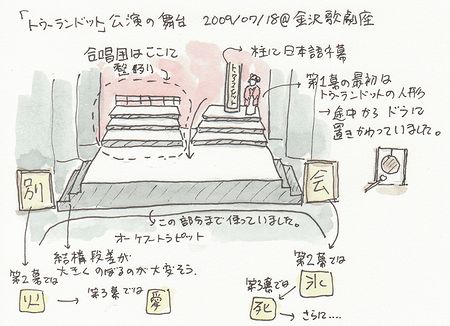 「トゥーランドット」公演の舞台 2009/07/18@金沢歌劇座
合唱団はここに
整列り
柱に日本語字幕
トゥーランドット
第1幕の最初は
トゥーランドットの人形
→途中からドラに
置きかわっていました。
別
会
この部分まで使っていました。
オーケストラピット
結構段差が
大きくのぼるのが大変そう。
第2幕では
火
→第3幕では
愛
第2幕では
氷
第3幕では
死
→さらに....